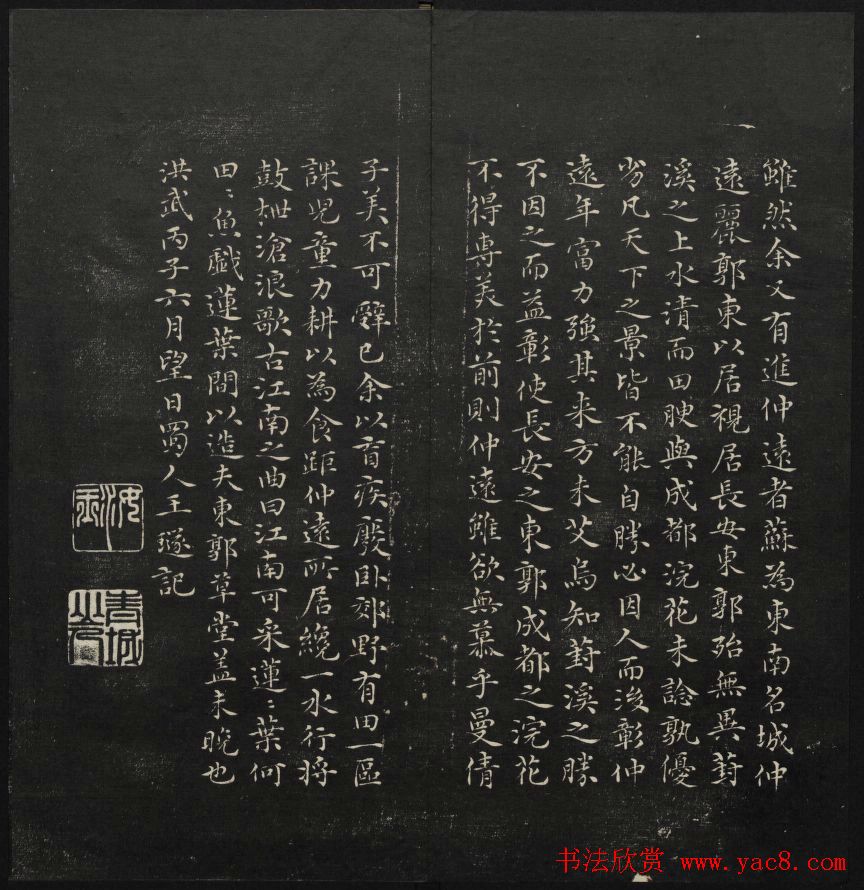 雖然余又有進仲遠者蘇為東南名城仲
遠麗郭東以居視居長安東郭殆無異葑
溪之上水清而田腴與成都浣花未諗孰優
劣凡天下之景皆不能自勝必因人而後彰仲
遠年富力強其来方未艾烏知葑溪之勝
不因之而益彰使長安之東郭成都之浣花
不得專美於前則仲遠雖欲無慕乎曼倩
子美不可辭已余以盲疾廢卧郊野有田一區
課児童力耕以為食距仲遠所居纔一水行将
鼓枻滄浪歌古江南之曲曰江南可采蓮〻葉何
田〻魚戲蓮葉間以造夫東郭草堂盖未晚也
洪武丙子六月望日蜀人王璲記
青城山
书法欣赏 www.yac8.com